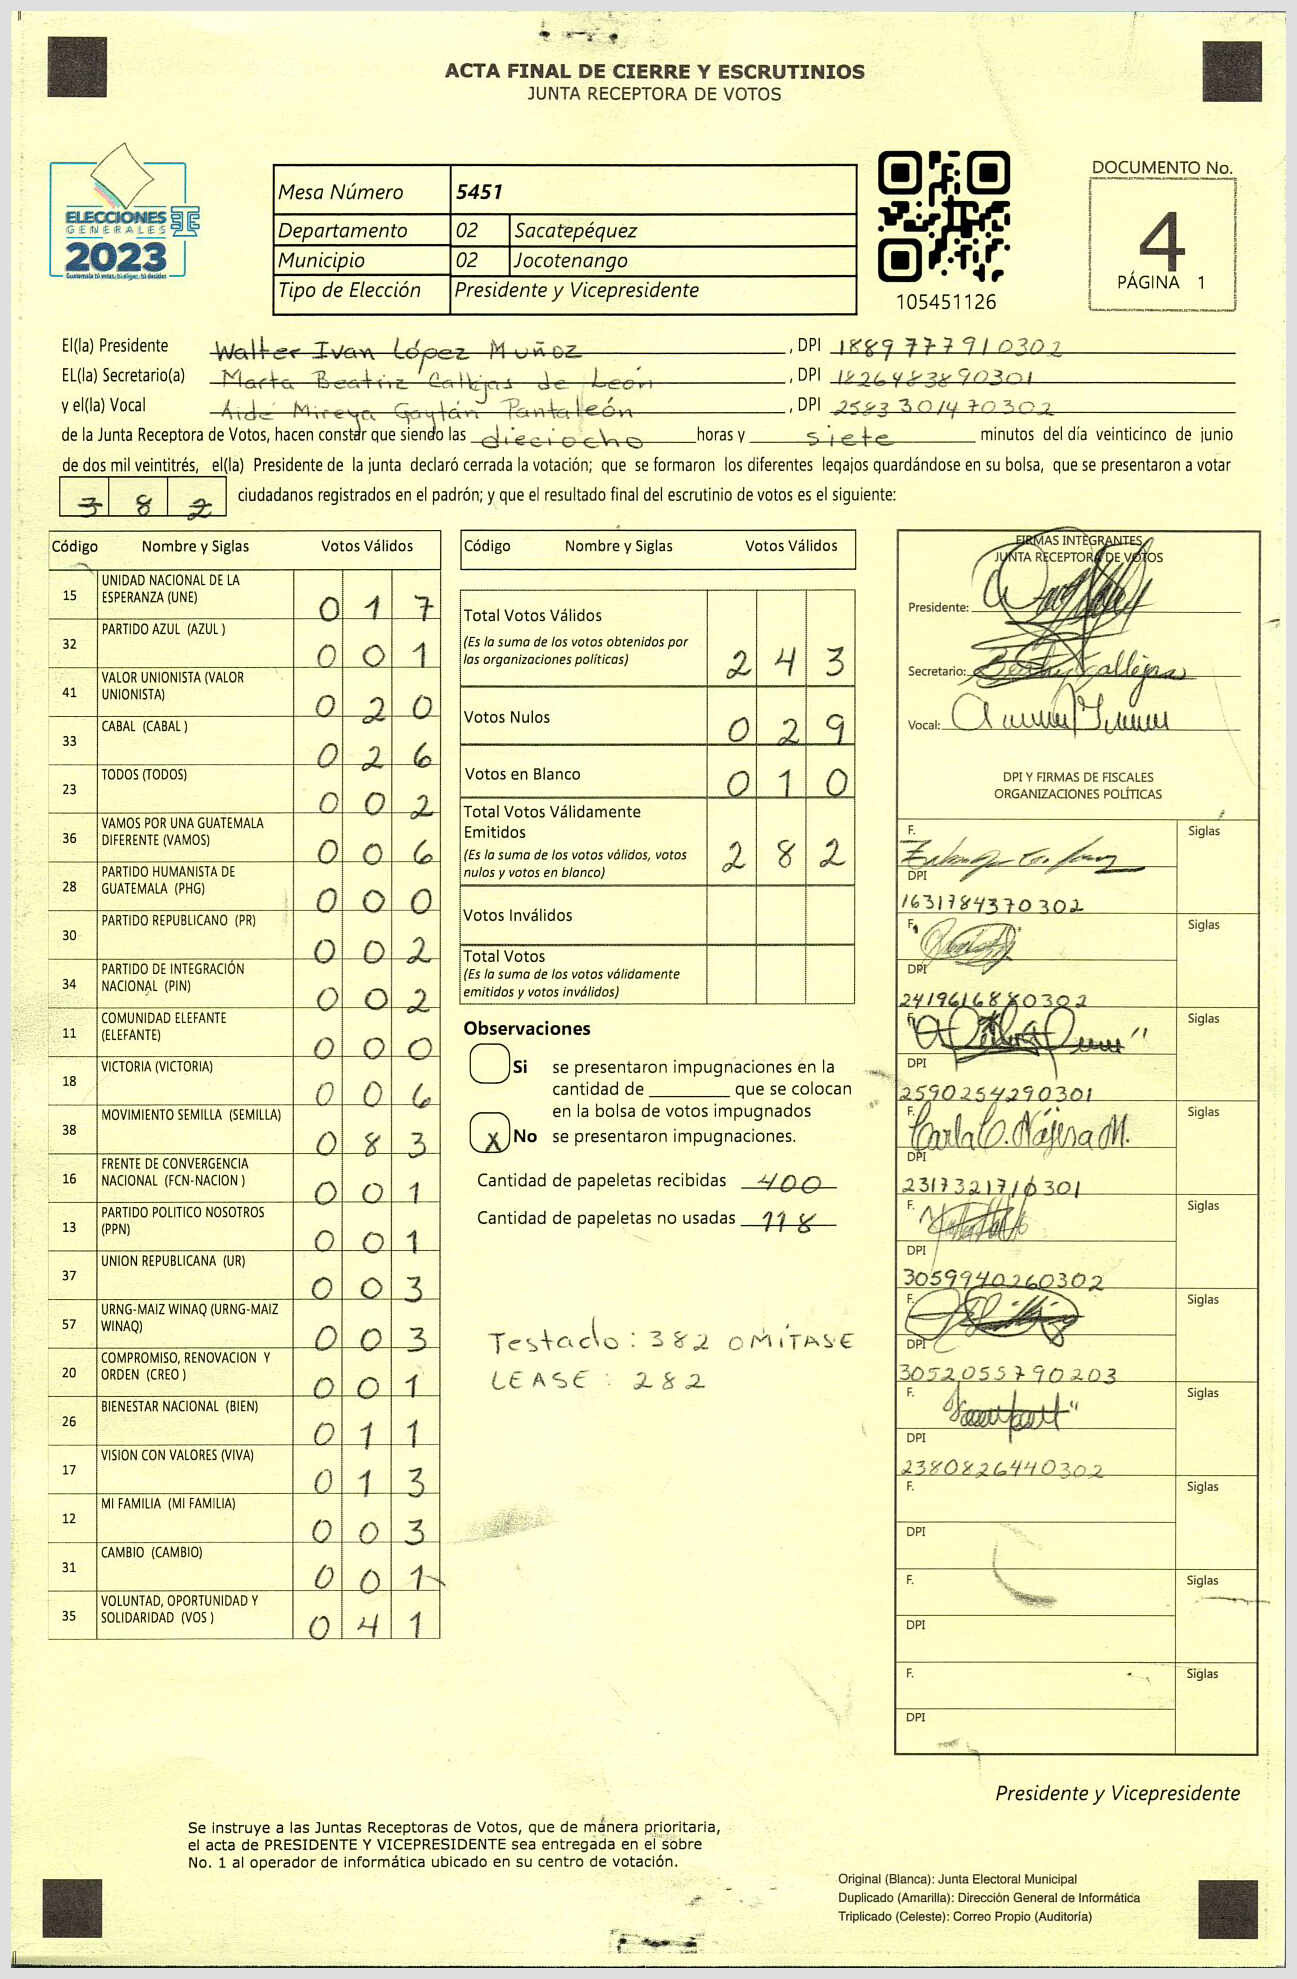 ACTA FINAL DE CIERRE Y ESCRUTINIOS
JUNTA RECEPTORA DE VOTOS
ELECCIONES
GENERALES
2023
Mesa Número 5451
Departamento 02 Sacatepéquez
Municipio 02 Jocotenango
Tipo de Elección Presidente y Vicepresidente
105451126
DOCUMENTO No.
4
PÁGINA 1
El(la) Presidente Walter Ivan López Muñoz, DPI 1889777910302
EL(la) Secretario(a) Marta Beatriz Callejas de León, DPI 1826483890301
y el(la) Vocal Aidé Mireya Gaytán Pantaleón, DPI 2583301470302
de la Junta Receptora de Votos, hacen constar que siendo las dieciocho horas y siete minutos del día veinticinco de junio
de dos mil veintitrés, el(la) Presidente de la junta declaró cerrada la votación; que se formaron los diferentes legajos guardándose en su bolsa, que se presentaron a votar
382 ciudadanos registrados en el padrón; y que el resultado final del escrutinio de votos es el siguiente:
Código Nombre y Siglas Votos Válidos
15 UNIDAD NACIONAL DE LA
ESPERANZA (UNE) 017
32 PARTIDO AZUL (AZUL ) 001
41 VALOR UNIONISTA (VALOR
UNIONISTA) 020
33 CABAL (CABAL ) 026
23 TODOS (TODOS) 002
36 VAMOS POR UNA GUATEMALA
DIFERENTE (VAMOS) 006
28 PARTIDO HUMANISTA DE
GUATEMALA (PHG) 000
30 PARTIDO REPUBLICANO (PR) 002
34 PARTIDO DE INTEGRACIÓN
NACIONAL (PIN) 002
11 COMUNIDAD ELEFANTE
(ELEFANTE) 000
18 VICTORIA (VICTORIA) 006
38 MOVIMIENTO SEMILLA (SEMILLA) 083
16 FRENTE DE CONVERGENCIA
NACIONAL (FCN-NACION ) 001
13 PARTIDO POLITICO NOSOTROS
(PPN) 001
37 UNION REPUBLICANA (UR) 003
57 URNG-MAIZ WINAQ (URNG-MAIZ
WINAQ) 003
20 COMPROMISO, RENOVACION Y
ORDEN (CREO ) 001
26 BIENESTAR NACIONAL (BIEN) 011
17 VISION CON VALORES (VIVA) 013
12 MI FAMILIA (MI FAMILIA) 003
31 CAMBIO (CAMBIO) 001
35 VOLUNTAD, OPORTUNIDAD Y
SOLIDARIDAD (VOS ) 041
Código Nombre y Siglas Votos Válidos
Total Votos Válidos
(Es la suma de los votos obtenidos por
las organizaciones políticas) 243
Votos Nulos 029
Votos en Blanco 010
Total Votos Válidamente
Emitidos
(Es la suma de los votos válidos, votos
nulos y votos en blanco) 282
Votos Inválidos
Total Votos
(Es la suma de los votos válidamente
emitidos y votos inválidos)
Observaciones
Si se presentaron impugnaciones en la
cantidad de ________ que se colocan
en la bolsa de votos impugnados
X No se presentaron impugnaciones.
Cantidad de papeletas recibidas 400
Cantidad de papeletas no usadas 118
Testado: 382 OMÍTASE
LEASE: 282
FIRMAS INTEGRANTES
JUNTA RECEPTORA DE VOTOS
Presidente:
Secretario: Callejas
Vocal:
DPI Y FIRMAS DE FISCALES
ORGANIZACIONES POLÍTICAS
F. Siglas
DPI
1631784370302
F. Siglas
DPI
2419616880302
F. Siglas
DPI
2590254290301
F. Carla C. Nájera M. Siglas
DPI
2317321710301
F. Siglas
DPI
3059940260302
F. Siglas
DPI
3052055790203
F. Siglas
DPI
2380826440302
F. Siglas
DPI
F. Siglas
DPI
F. Siglas
DPI
Presidente y Vicepresidente
Se instruye a las Juntas Receptoras de Votos, que de mánera prioritaria,
el acta de PRESIDENTE Y VICEPRESIDENTE sea entregada en el sobre
No. 1 al operador de informática ubicado en su centro de votación.
Original (Blanca): Junta Electoral Municipal
Duplicado (Amarilla): Dirección General de Informática
Triplicado (Celeste): Correo Propio (Auditoría)